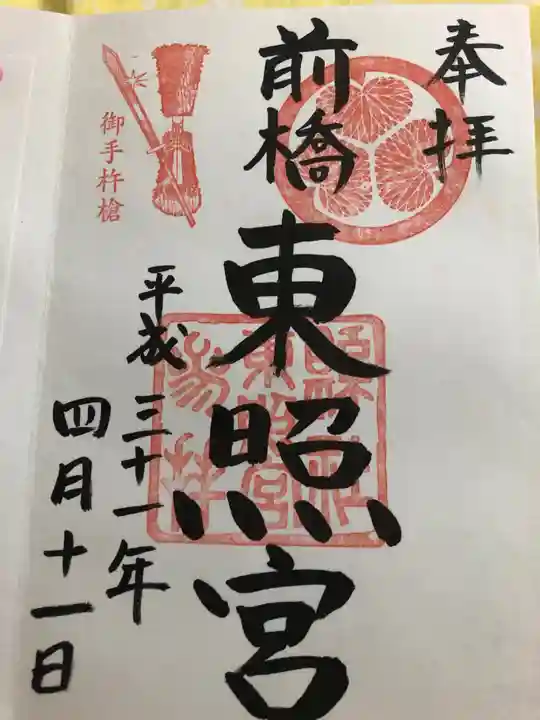 奉拝
前橋東照宮
平成三十一年
四月十一日
御手杵槍
縣社
東照宮